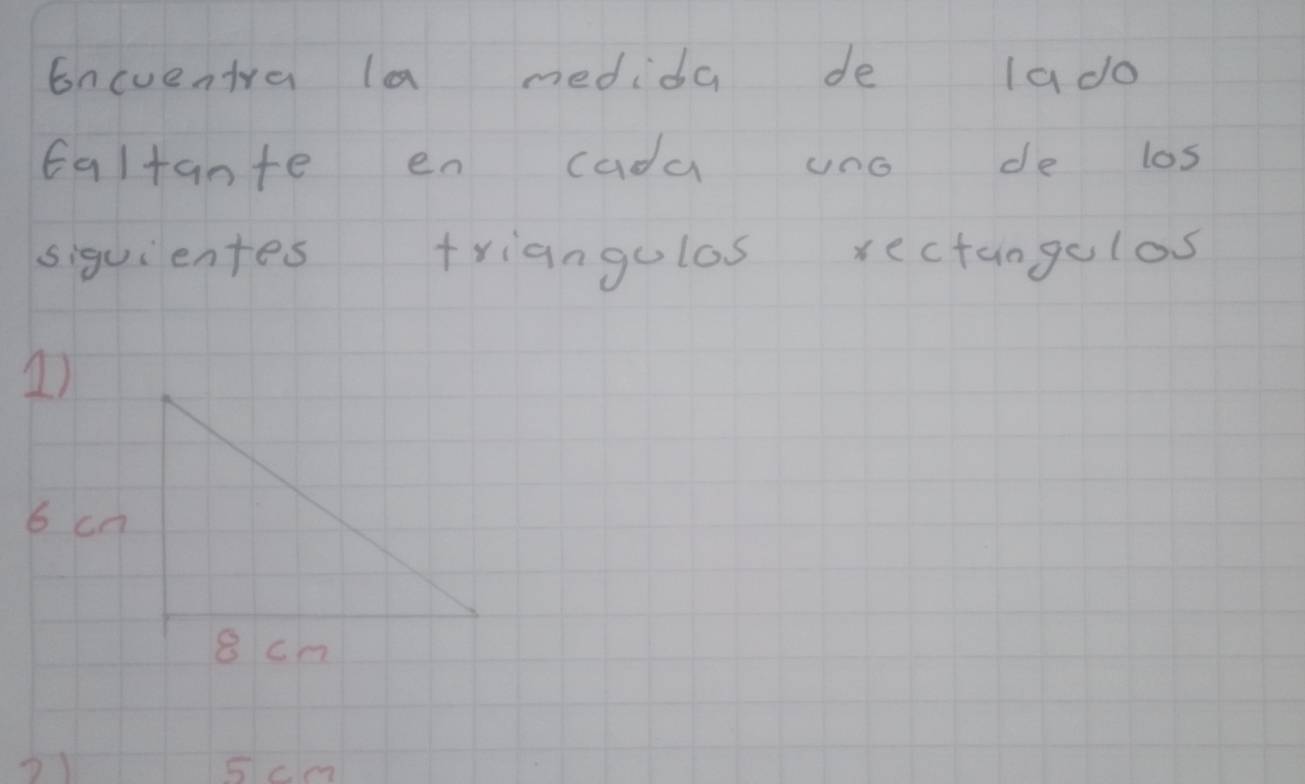 Encuentra la medida de lado
faltante en cada uno de los
siguientes triangulos rectangulos
1)
6 cm
8 cm
2) 5 cm